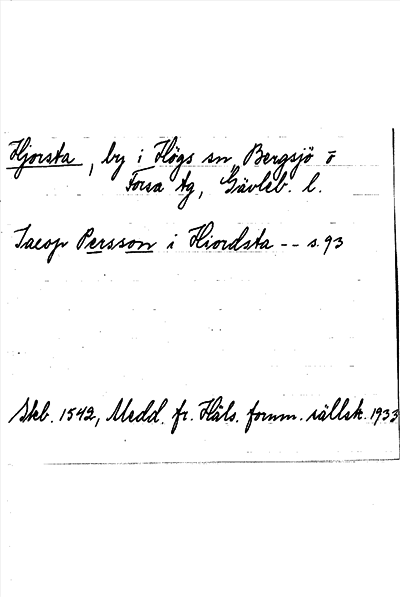 Hjorsta, by i Högs sn, Bergsjö o
Forsa tg, Gävleb. l.
Jacop Persson i Hiordsta -- s. 93
Skb. 1542, Medd. fr. Häls. fornm. sällsk. 1933